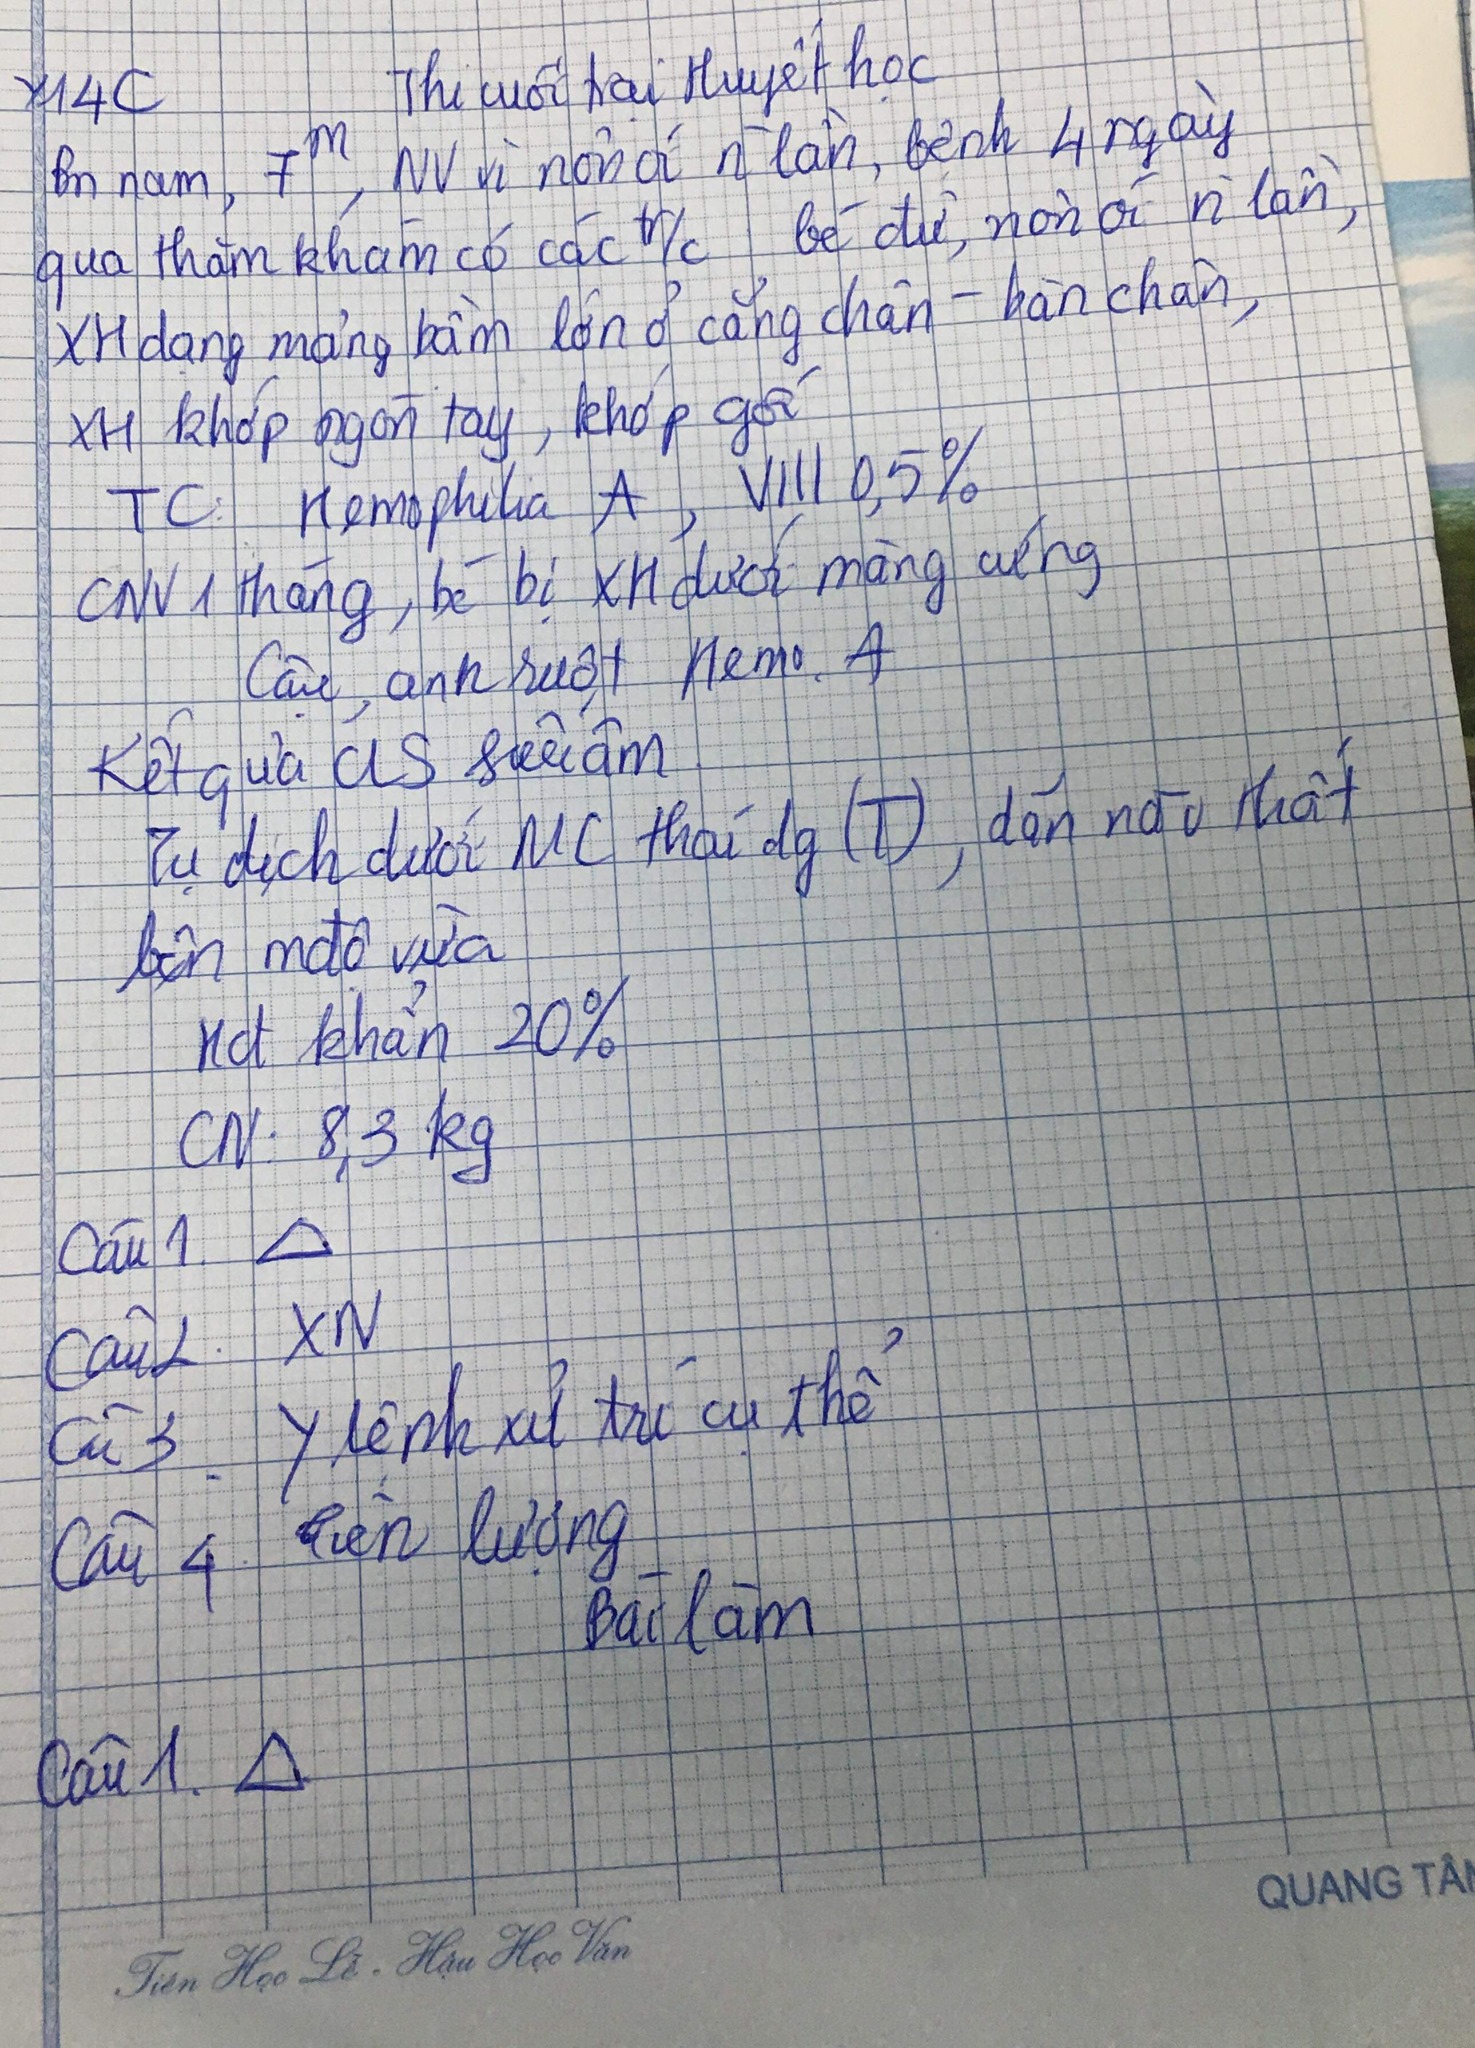 Y14C Thi cuối trại Huyết học
Bn nam, 7m, NV vì nôn ói n lần, bệnh 4 ngày
qua thăm khám có các tr/c bé đừ, nôn ói n lần,
XH dạng mảng bầm lớn ở cẳng chân - bàn chân,
XH khớp ngón tay, khớp gối
TC: Hemophilia A, VIII 0,5%
CNV 1 tháng, bé bị XH dưới màng cứng
Cậu, anh ruột Hemo. A
Kết quả CLS siêu âm
Tụ dịch dưới MC thái dg (T), dãn não thất
bên mđộ vừa
Hct khẩn 20%
CN: 8,3 kg
Câu 1. △
Câu 2. XN
Câu 3. Y lệnh xử trí cụ thể
Câu 4. Tiên lượng
Bài làm
Câu 1. △
QUANG TÂN
Tiên Học Lễ - Hậu Học Văn